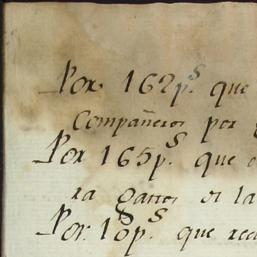 Por. 162p.s que
Compañeros por
Por 165p.s que
ra gastos de la
Por. 18p.s que rec